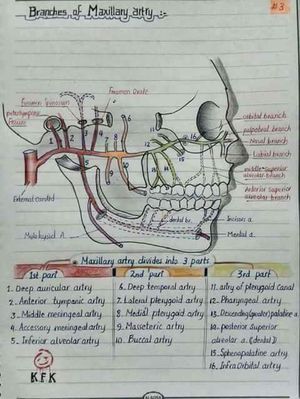 Branches of Maxillary artry :-
#3
Foramen Ovale
Foramen spinosum
petrotympanic
fissure
orbital branch
palpebral branch
Nasal branch
Labial branch
middle+superior
alveolar branch
Anterior superior
alveolar branch
External carotid
Mylohyoid A.
dental br.
Incisor a.
Mental a.
Maxillary artry divides into 3 parts
1st part
1. Deep auricular artry
2. Anterior tympanic artry
3. Middle meningeal artry
4. Accessory meningeal artry
5. Inferior alveolar artry
2nd part
6. Deep temporal artry
7. Lateral pterygoid artry
8. Medial pterygoid artry
9. Masseteric artry
10. Buccal artry
3rd part
11. artry of pterygoid Canal
12. Pharyngeal artry
13. Descending(greater)palatine a.
14. posterior Superior
alveolar a. (dental)
15. Sphenopalatine artry
16. InfraOrbital artry
KFK